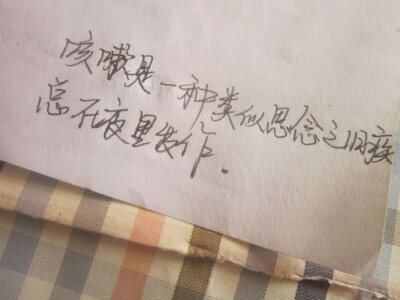 咳嗽是一种类似思念之旧疾
总在夜里发作.